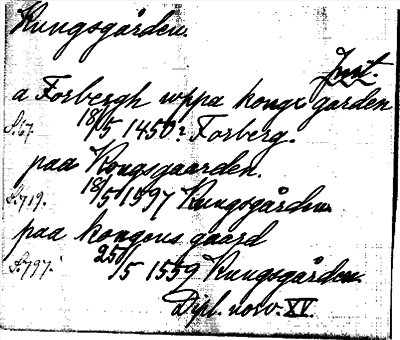 Kungsgården.
Just.
a Forbergh uppa kongx garden
S.67. 18/5 1450? Forberg.
paa Kongsgaarden.
S.719. 18/5 1597 Kungsgården
paa kongens gaard
S.797. 25/5 1559 Kungsgården
Dipl. norv. XV.